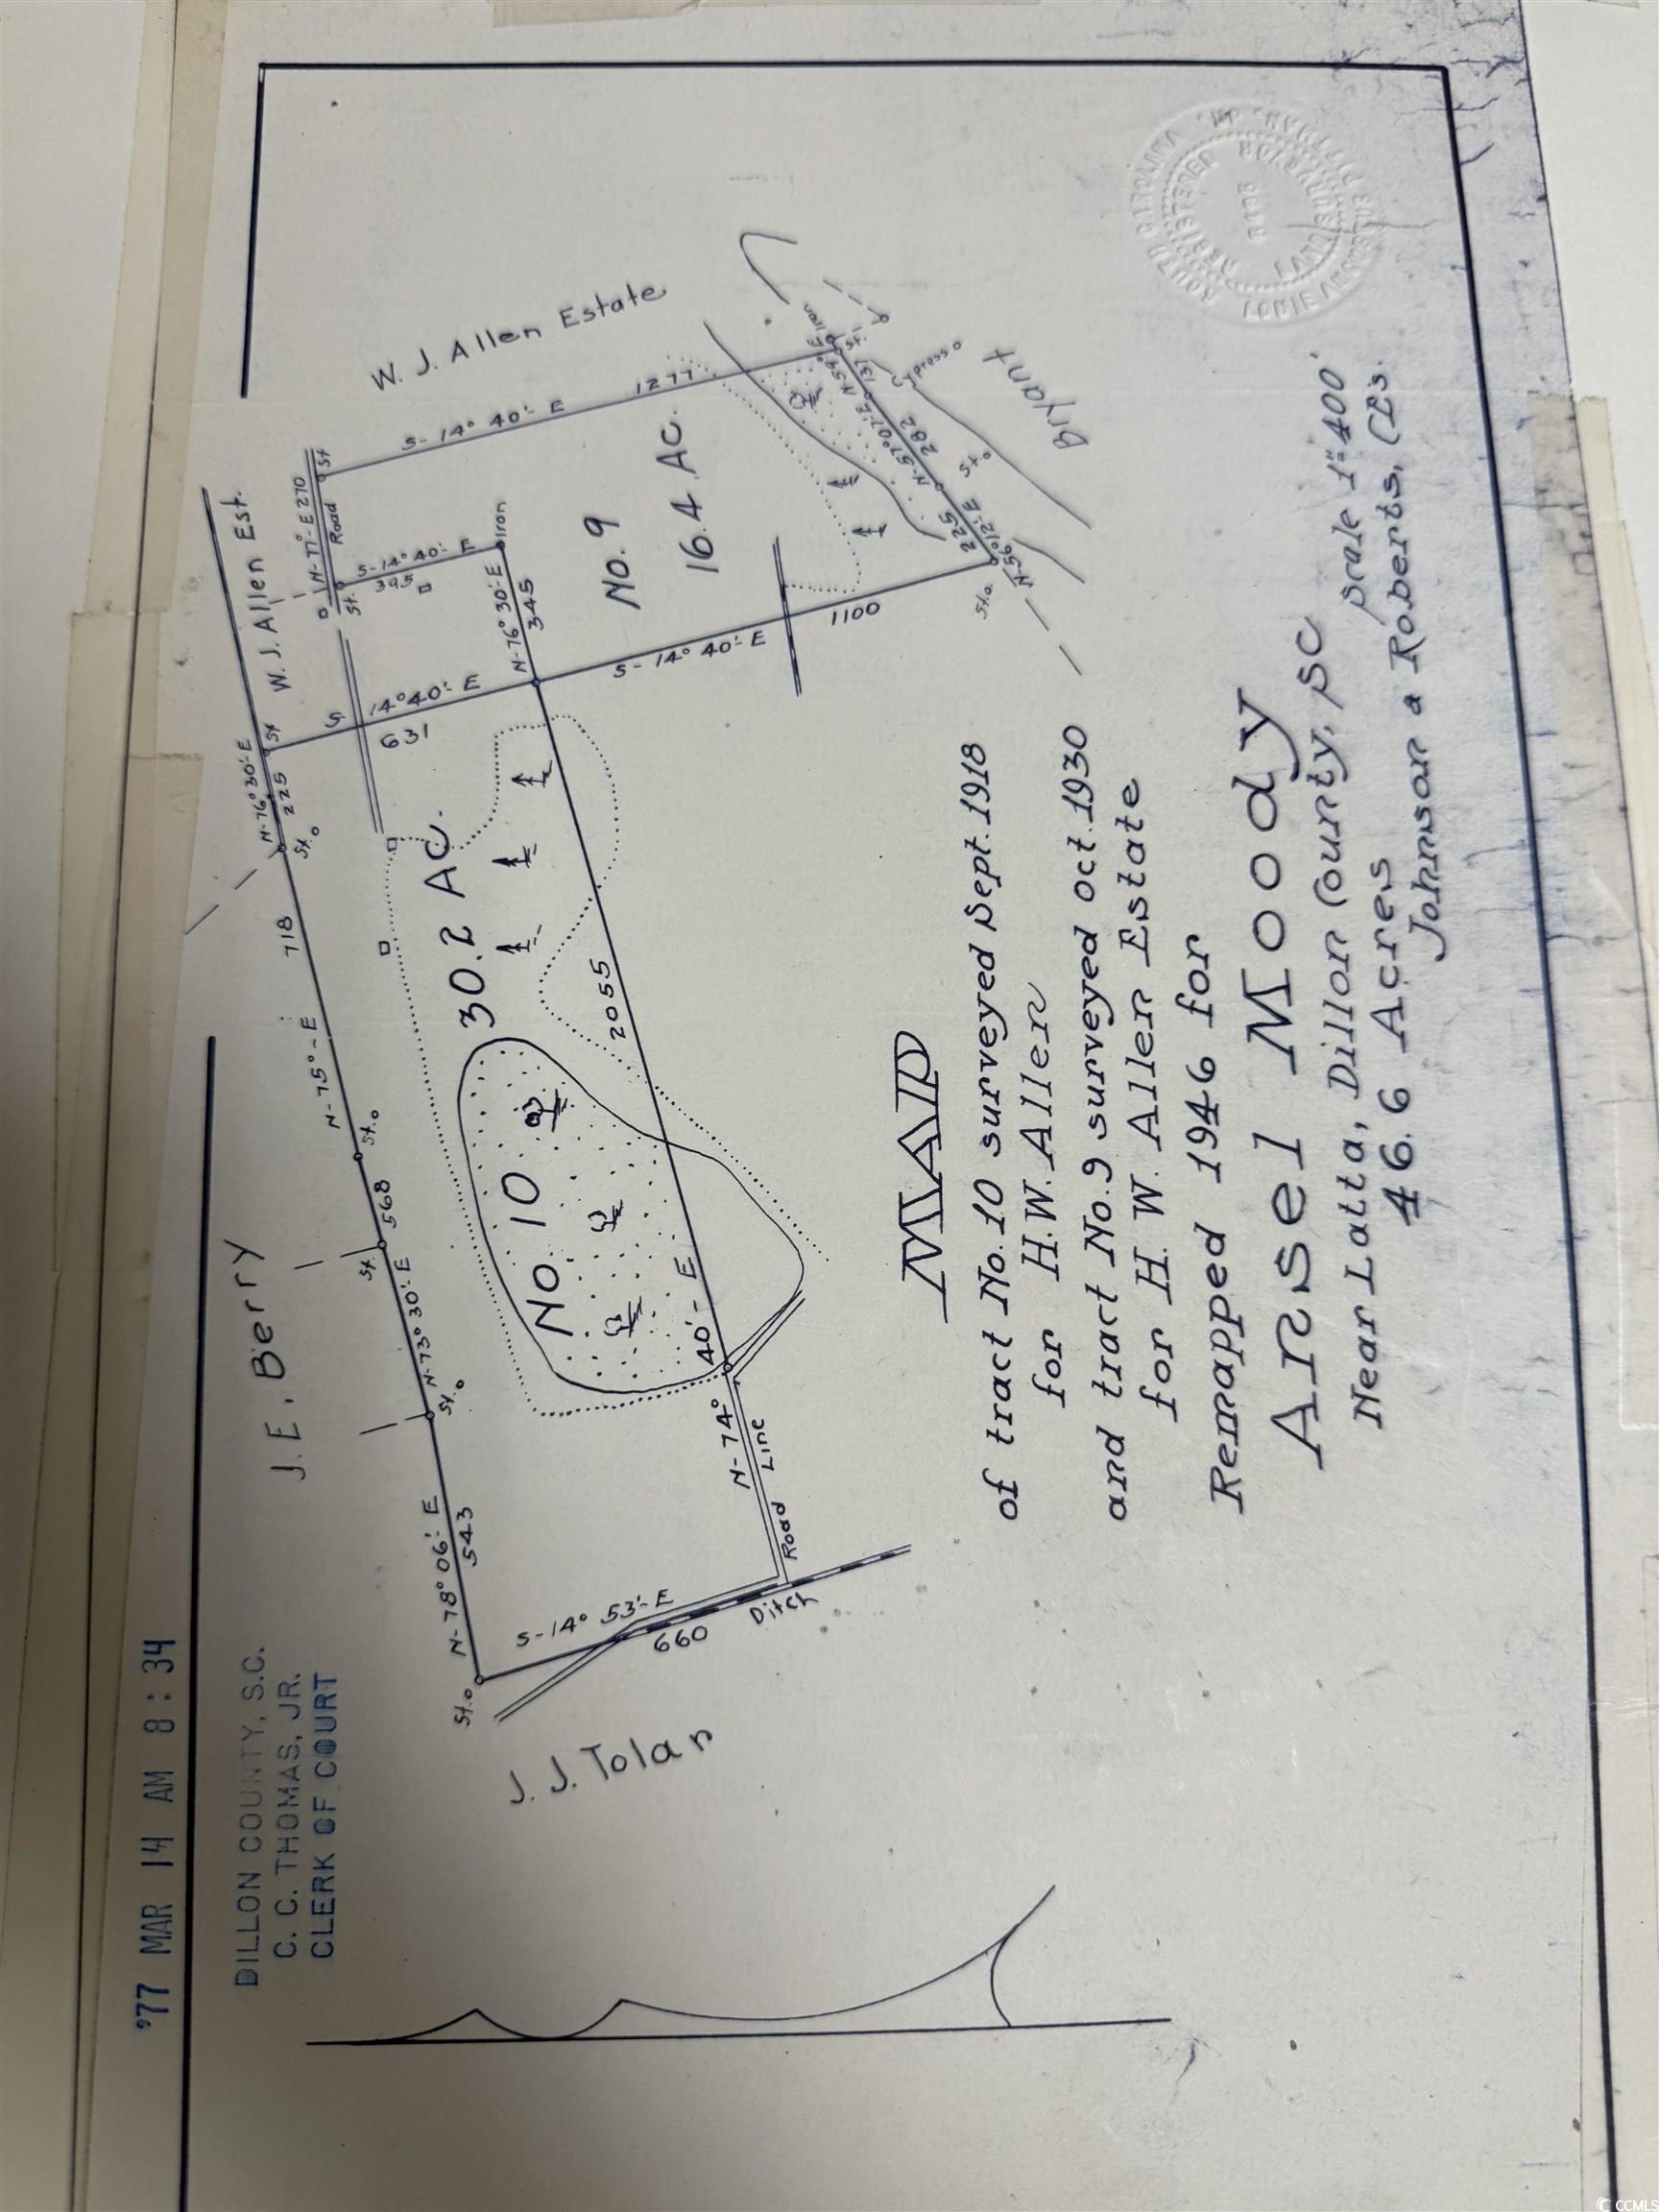 '77 MAR 14 AM 8:34
DILLON COUNTY, S.C.
C. C. THOMAS, JR.
CLERK OF COURT
J. E. Berry
W. J. Allen Est.
W. J. Allen Estate
J. J. Tolan
Bryant
St.
N-78° 06'-E
543
St.
N-73° 30'-E
568
St.
St.
N-75°-E
718
St.
N-76° 30'-E
225
St
S-
14° 40'-E
631
N-77°-E 270
Road
St.
St
S-14° 40'-E
395
Iron
N-76° 30'-E
345
S-14° 40'-E
1277
No. 9
16.4 AC.
30.2 AC.
No. 10
2055
S-14° 40'-E
1100
St.
N-56° 12'-E
225
St.
N-57° 07'-E
282
137
Iron
St.
S-14° 53'-E
660
Ditch
Road Line
N-74°
40'-E
MAP
of tract No. 10 surveyed Sept. 1918
for H.W. Allen
and tract No. 9 surveyed Oct. 1930
for H. W. Allen Estate
Remapped 1946 for
Ansel Moody
Near Latta, Dillon County, SC
46.6 Acres
scale 1"=400'
Johnson & Roberts, CEs.
SOUTH CAROLINA
REGISTERED
LAND SURVEYOR
© CCMLS